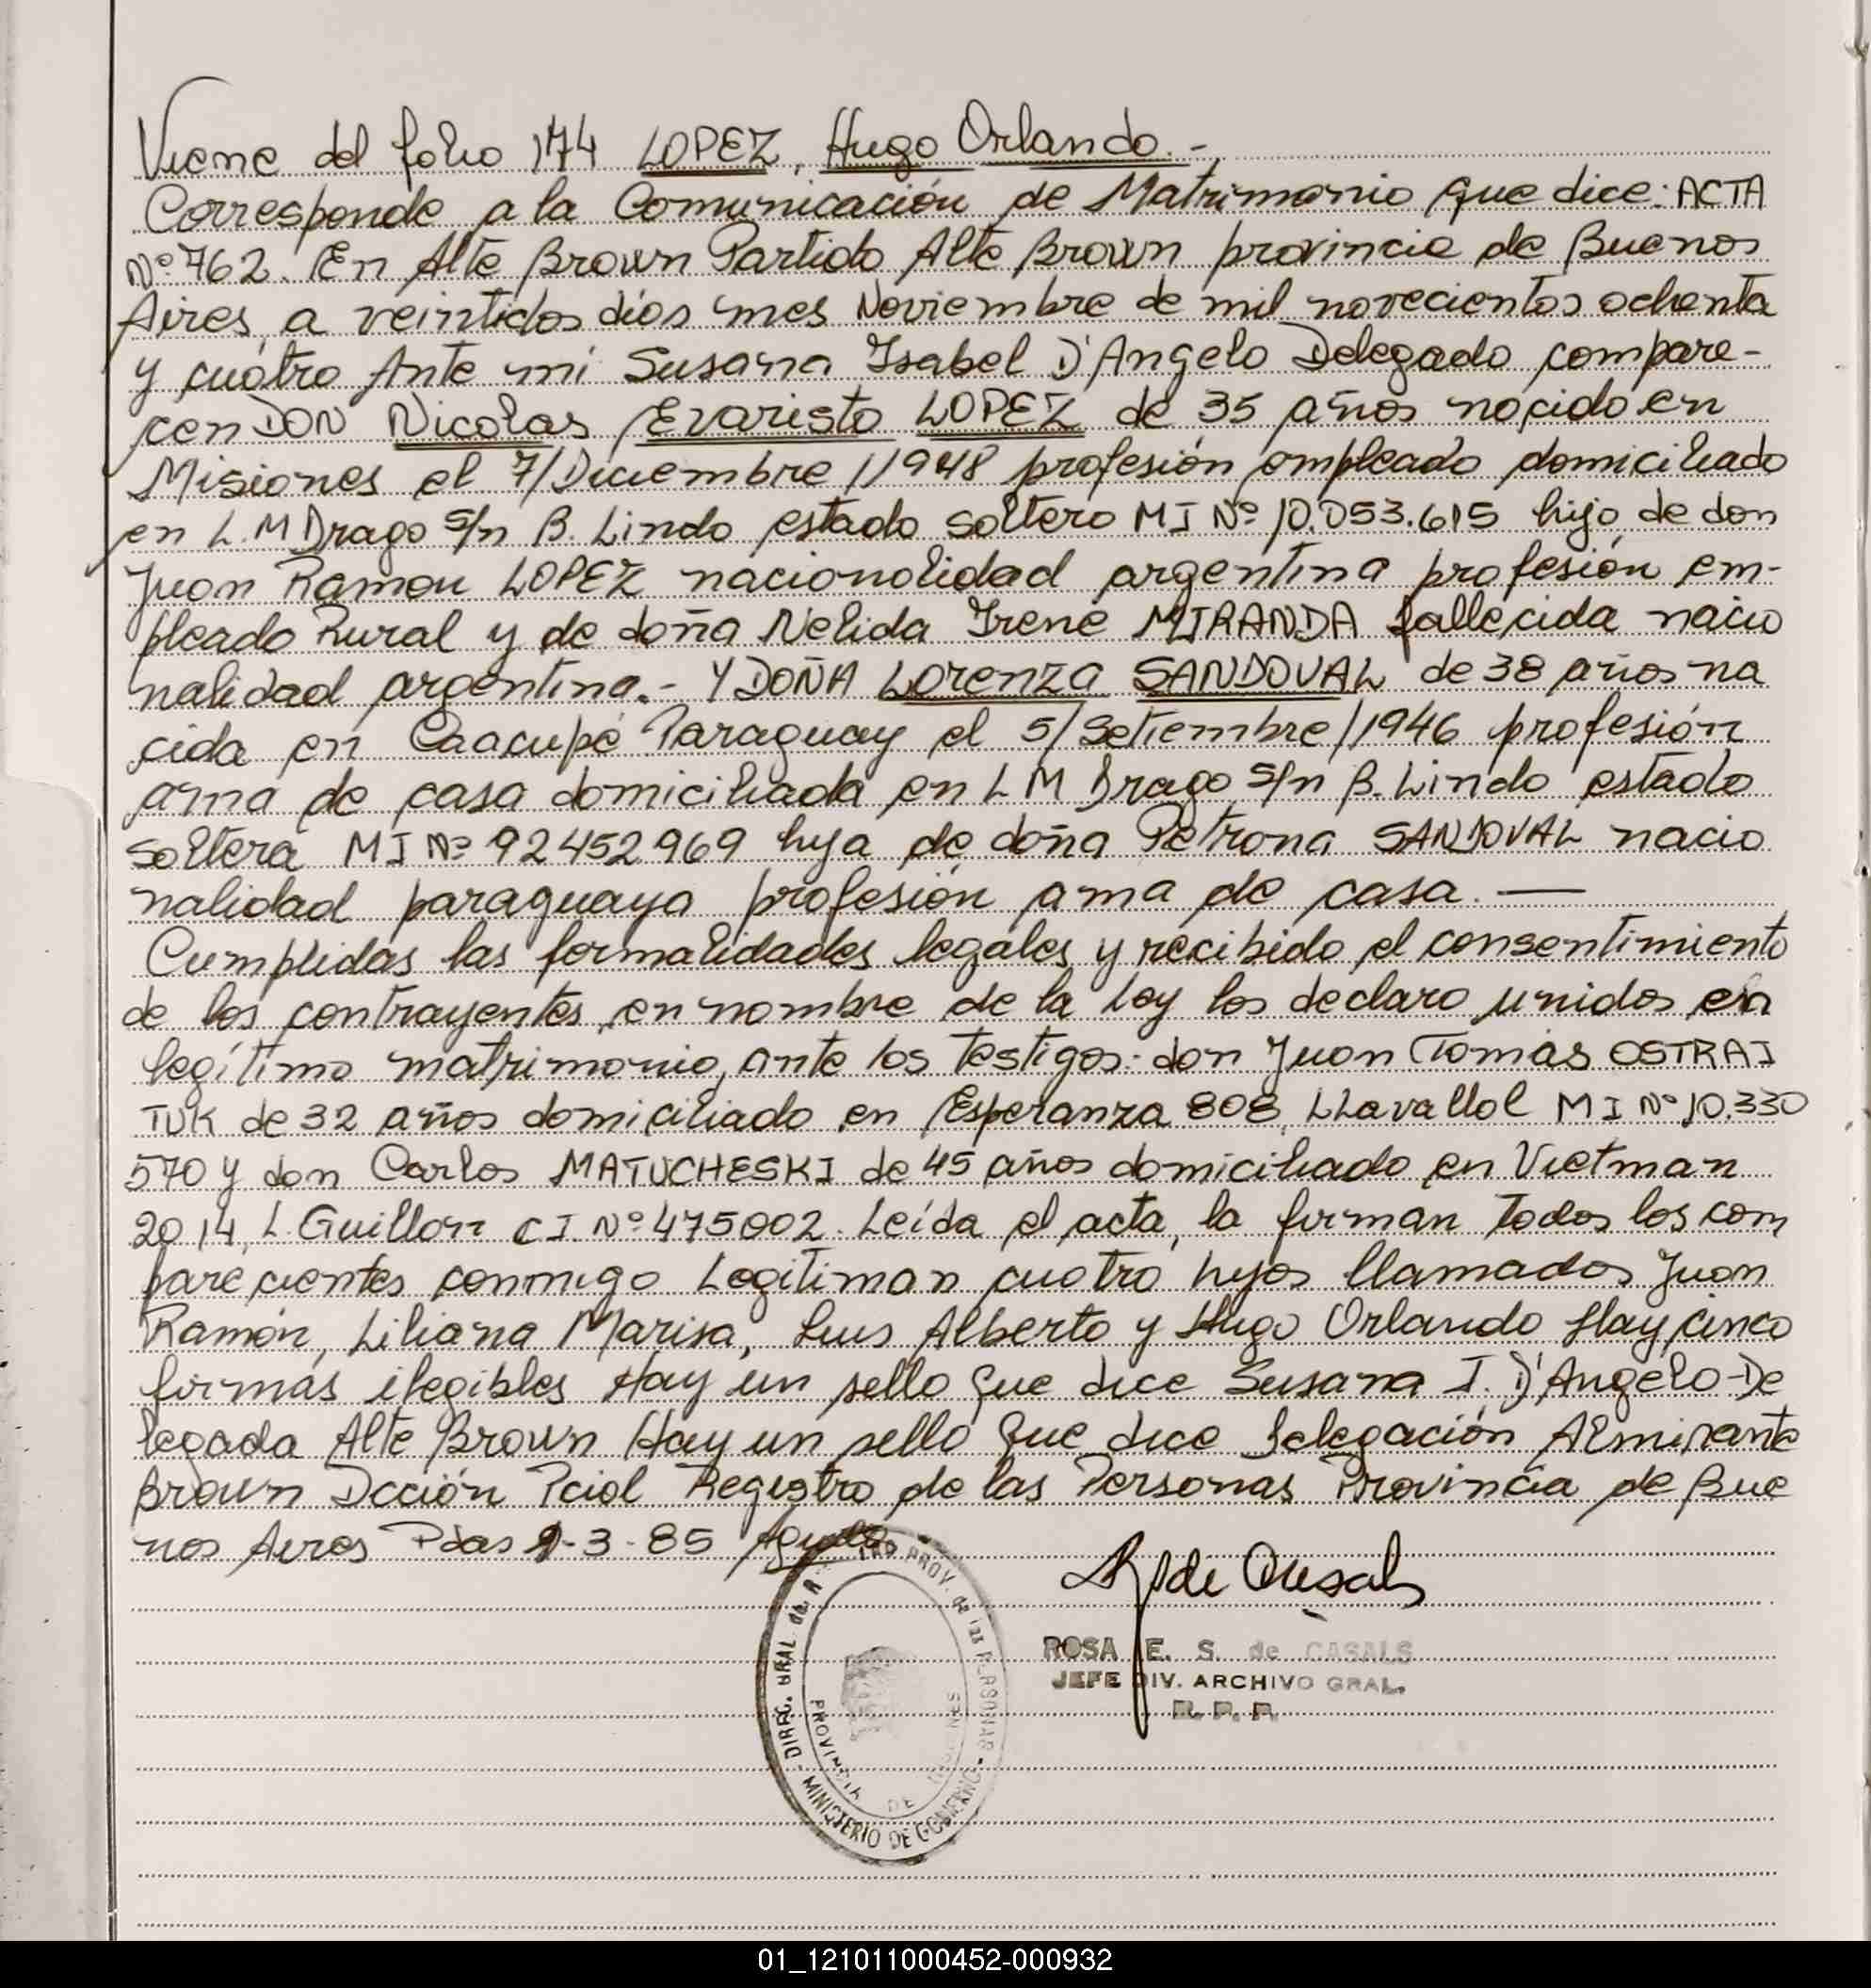 Viene del folio 174 LOPEZ, Hugo Orlando.-
Corresponde a la Comunicación de Matrimonio que dice: ACTA
Nº 762. En Alte Brown Partido Alte Brown provincia de Buenos
Aires, a veintidos dias mes Noviembre de mil novecientos ochenta
y cuatro Ante mi Susana Isabel D'Angelo Delegado compare-
cen DON Nicolas Evaristo LOPEZ de 35 años nacido en
Misiones el 7/Diciembre/1948 profesión empleado domiciliado
en L.M Drago s/n B. Lindo estado soltero MI Nº 10.053.615 hijo de don
Juan Ramon LOPEZ nacionalidad argentina profesión em-
pleado Rural y de doña Nelida Irene MIRANDA fallecida nacio
nalidad argentina.- Y DOÑA Lorenza SANDOVAL de 38 años na
cida en Caacupé Paraguay el 5/Setiembre/1946 profesión
ama de casa domiciliada en L M Drago s/n B. Lindo estado
soltera MI Nº 92452969 hija de doña Petrona SANDOVAL nacio
nalidad paraguaya profesión ama de casa. —
Cumplidas las formalidades legales y recibido el consentimiento
de los contrayentes, en nombre de la Ley los declaro unidos en
legítimo matrimonio, ante los testigos: don Juan Tomás OSTRAJ
TUK de 32 años domiciliado en Esperanza 808, LLavallol MI Nº 10.330
570 y don Carlos MATUCHESKI de 45 años domiciliado en Vietman
2014, L. Guillon CI. Nº 475002. Leída el acta, la firman todos los com
parecientes conmigo Legitiman cuatro hijos llamados Juan
Ramón, Liliana Marisa, Luis Alberto y Hugo Orlando Hay cinco
firmas ilegibles Hay un sello que dice Susana I. D'Angelo-De
legada Alte Brown Hay un sello que dice Delegación Almirante
Brown Dcción Pcial Registro de las Personas Provincia de Bue
nos Aires Pdas -3-85
ROSA E. S. de CASALS
JEFE DIV. ARCHIVO GRAL.
R. P. P.
PROV. de las PERSONAS - MINISTERIO DE GOBIERNO - DIREC. GRAL de
PROVINCIA DE MISIONES
01_121011000452-000932